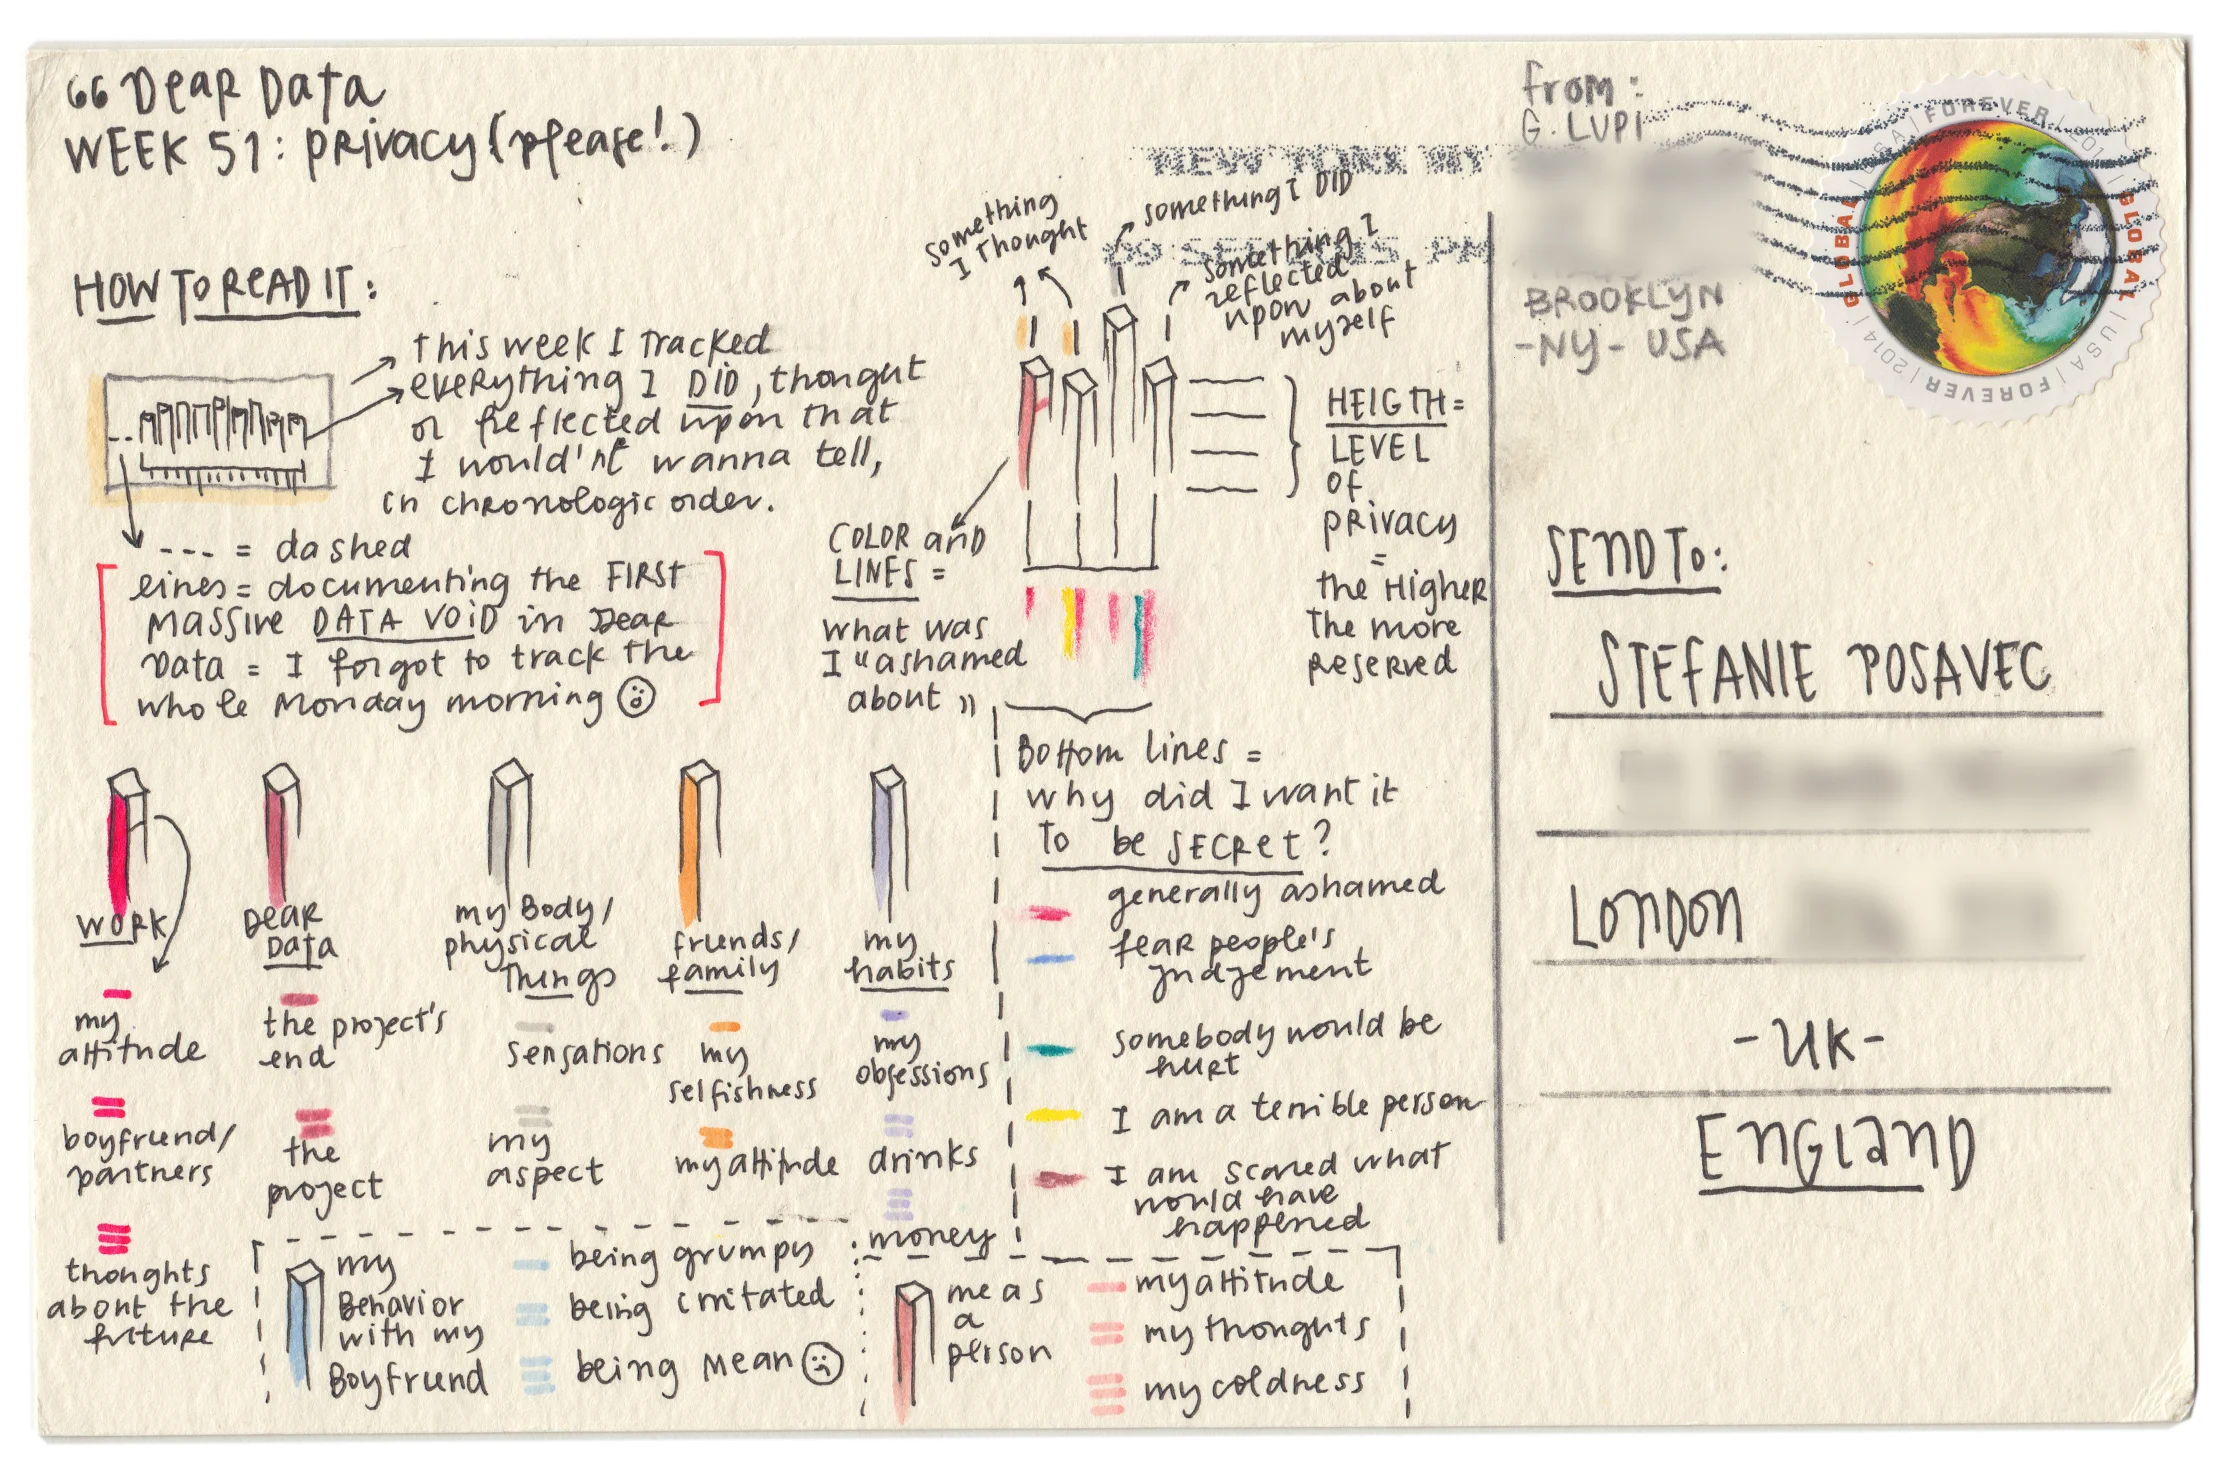 66 Dear Data
WEEK 51: privacy (please!)
HOW TO READ IT:
this week I tracked
everything I DID, thought
or reflected upon that
I would'nt wanna tell,
in chronologic order.
--- = dashed
lines = documenting the FIRST
MASSIVE DATA VOID in Dear
Data = I forgot to track the
whole Monday morning
something
I thought
something I DID
something I
reflected
upon about
myself
HEIGTH =
LEVEL
OF
privacy
=
the Higher
The more
reserved
COLOR and
LINES =
what was
I "ashamed
about"
WORK
my
attitude
boyfriend/
partners
thoughts
about the
future
Dear
Data
the project's
end
the
project
my Body/
physical
Things
sensations
my
aspect
friends/
family
my
selfishness
my attitude
my
habits
my
obsessions
drinks
money
my
Behavior
with my
Boyfriend
being grumpy
being irritated
being mean
Bottom lines =
why did I want it
To be SECRET?
generally ashamed
fear people's
judgement
somebody would be
hurt
I am a terrible person
I am scared what
would have
happened
me as
a
person
my attitude
my thoughts
my coldness
NEW YORK NY
from:
G. LUPI
BROOKLYN
-NY- USA
GLOBAL | USA | FOREVER | 2014 | GLOBAL | USA | FOREVER | 2014 |
SEND TO:
STEFANIE POSAVEC
LONDON
-UK-
ENGLAND